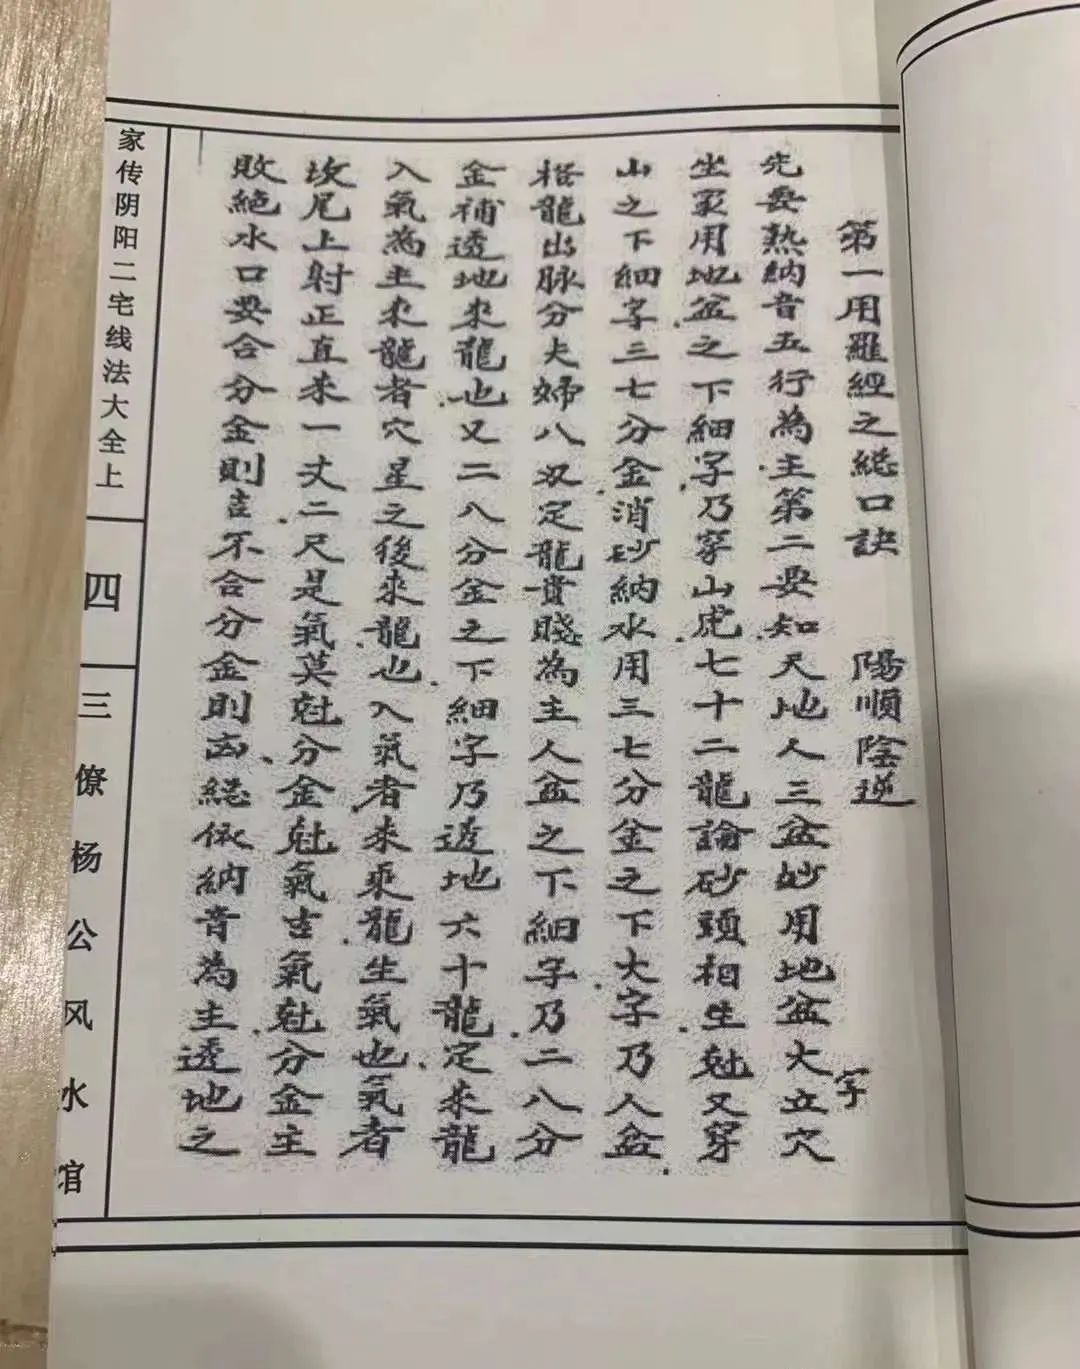 第一用羅經之総口訣　陽順陰逆
先要熟納音五行為主第二要知天地人三盆妙用地盆大字立穴
坐家用地盆之下細字乃穿山虎七十二龍論砂頭相生尅又穿
山之下細字三七分金消砂納水用三七分金之下大字乃人盆
格龍出脉分夫婦八双定龍貴賤為主人盆之下細字乃二八分
金補透地來龍也又二八分金之下細字乃透地六十龍定来龍
入氣為主來龍者穴星之後來龍也入氣者来乘龍生氣也氣者
坟尾上射正直来一丈二尺是氣莫尅分金尅氣吉氣尅分金主
敗絕水口要合分金則吉不合分金則凶総依納音為主透地之
家传阴阳二宅线法大全上
四
三僚杨公风水馆